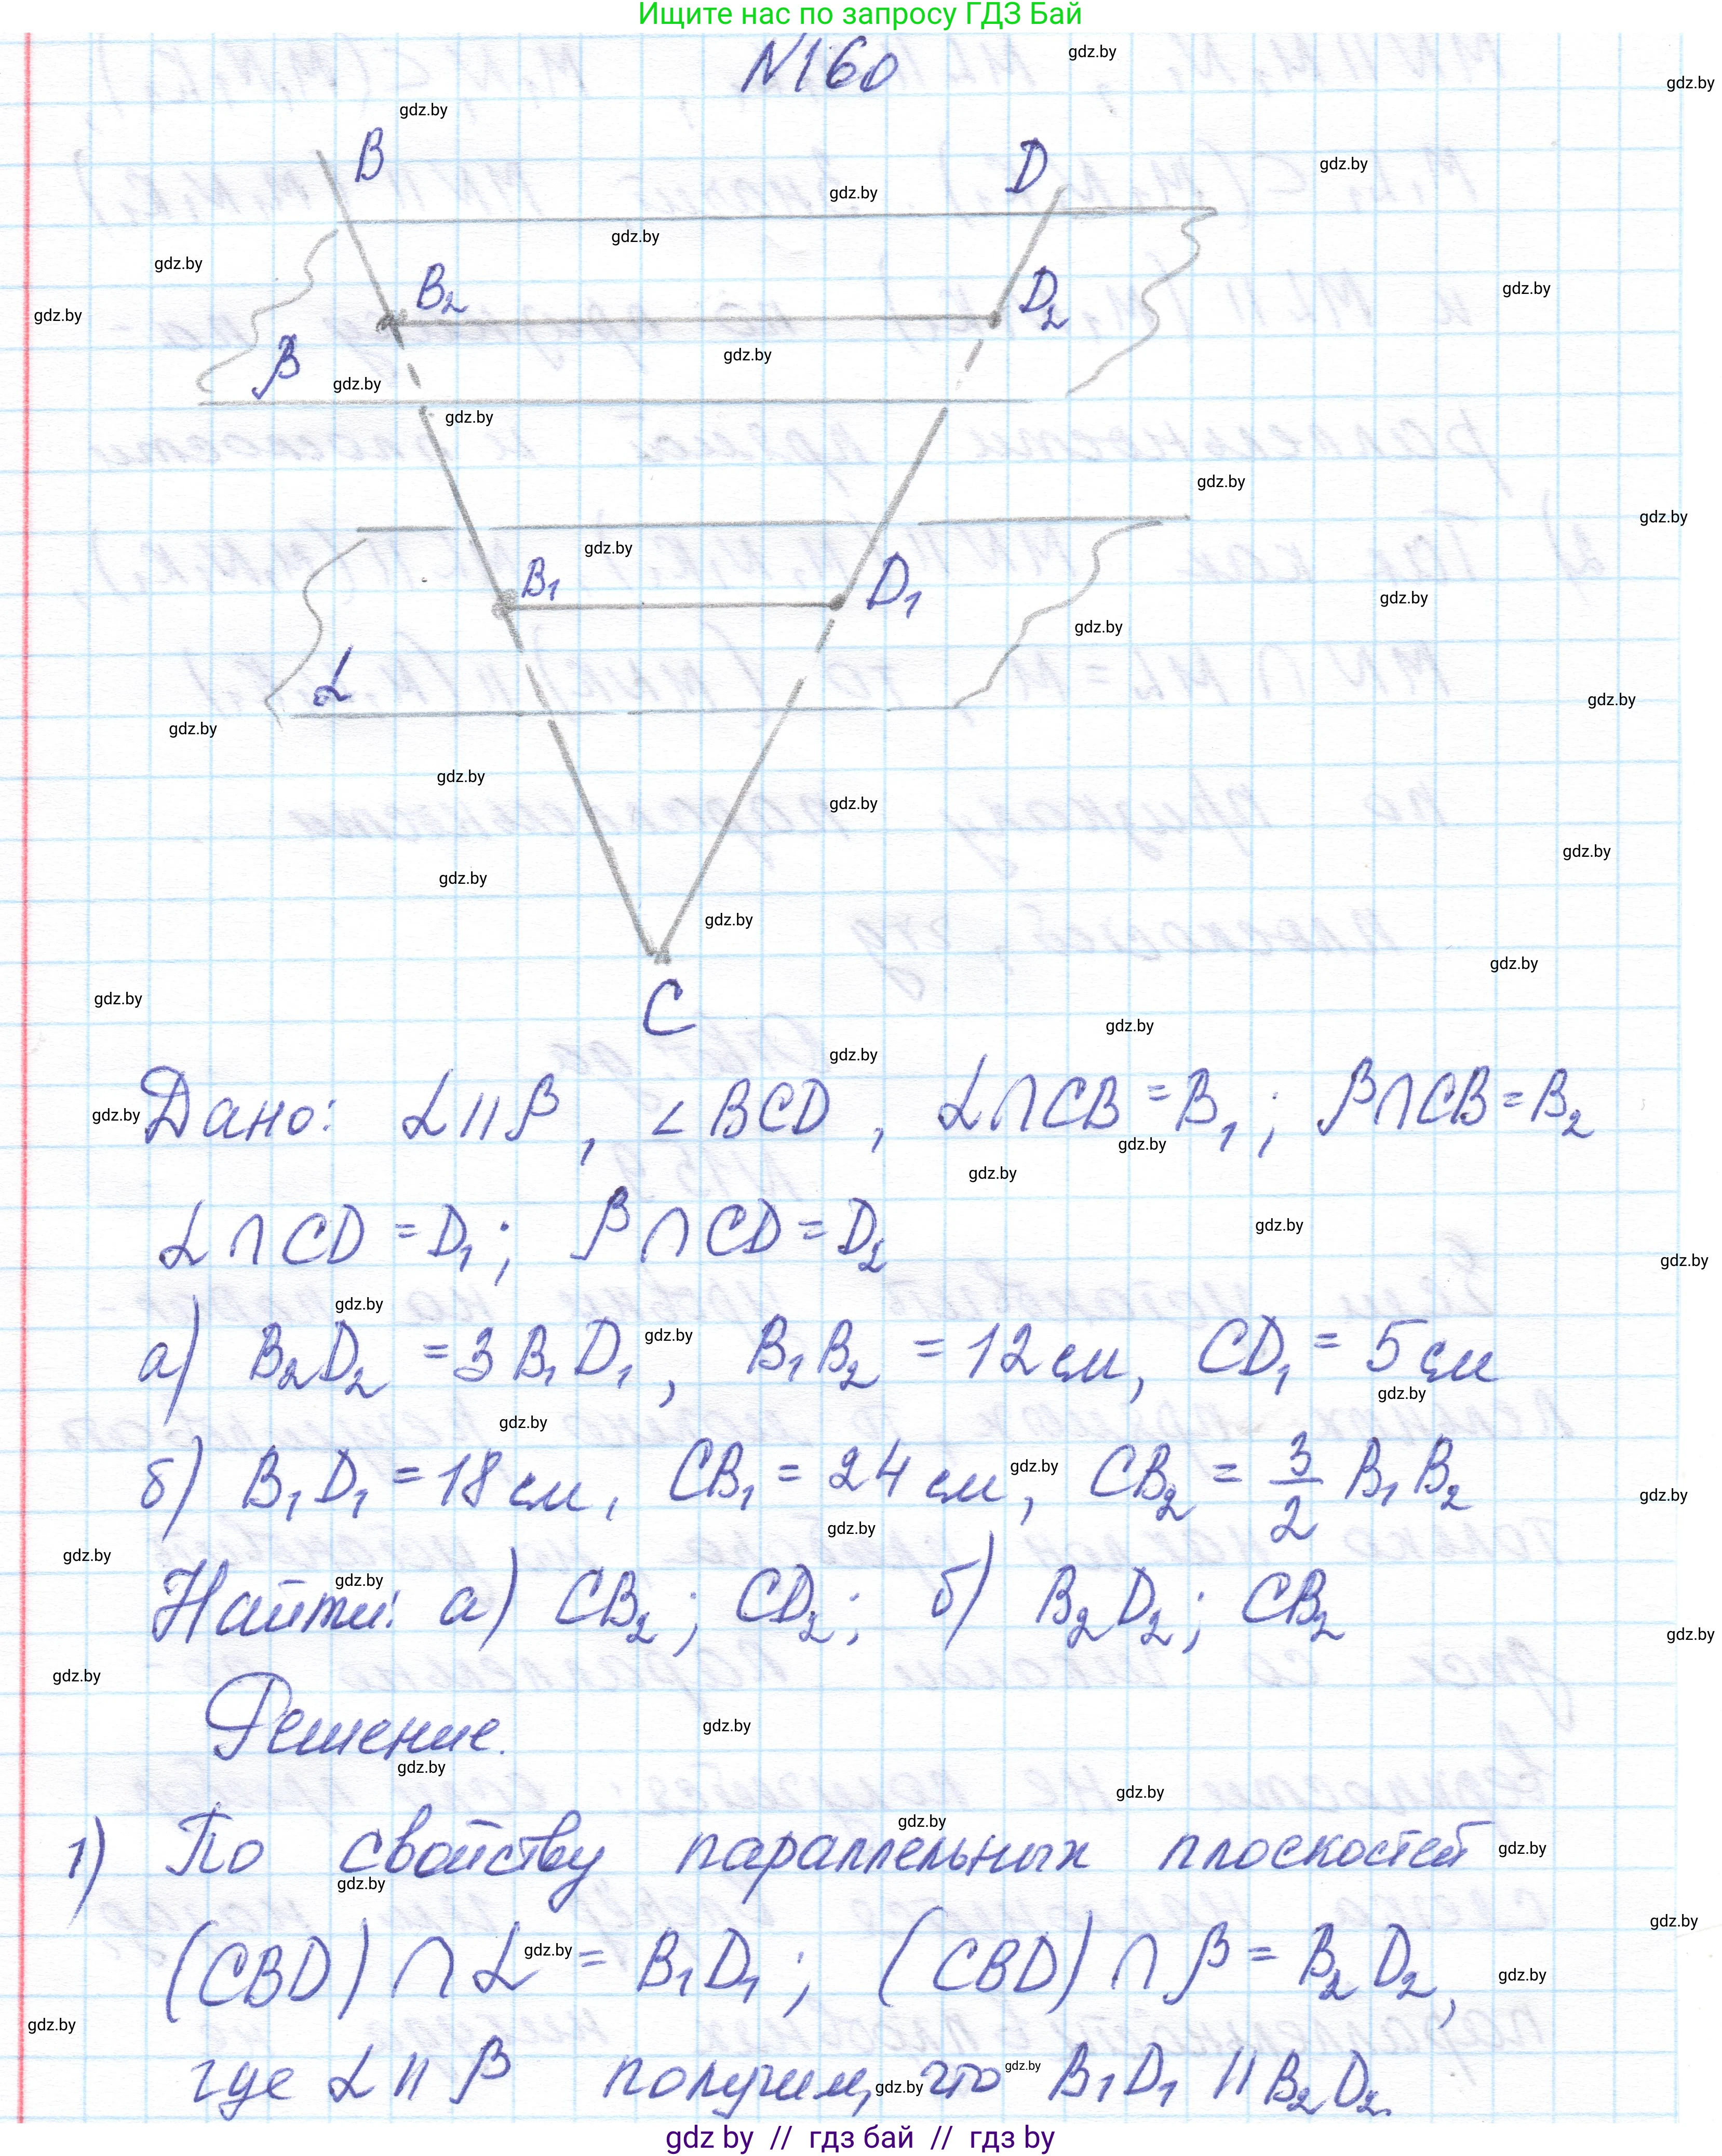 Ищите нас по запросу ГДЗ Бай
N160
B
D
B₂
D₂
β
B₁
D₁
α
C
Дано: α || β, ∠ BCD, α ∩ CB = B₁; β ∩ CB = B₂
α ∩ CD = D₁; β ∩ CD = D₂
а) B₂D₂ = 3 B₁D₁, B₁B₂ = 12 см, CD₁ = 5 см
б) B₁D₁ = 18 см, CB₁ = 24 см, CB₂ = 3/2 B₁B₂
Найти: а) CB₂; CD₂; б) B₂D₂; CB₂
Решение.
1) По свойству параллельных плоскостей
(CBD) ∩ α = B₁D₁; (CBD) ∩ β = B₂D₂,
где α || β получим, что B₁D₁ || B₂D₂.
gdz by // гдз бай // гдз by